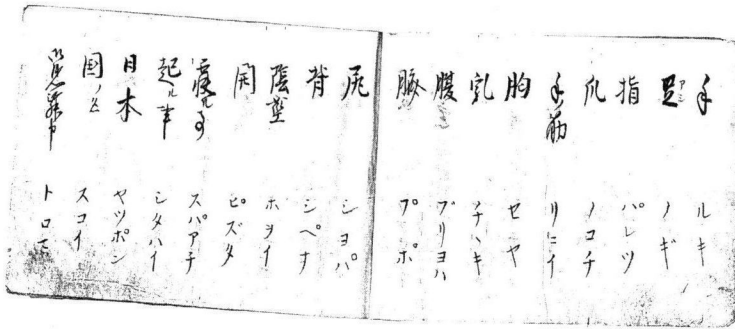 手 ルキ
足 アシ ノギ
指 パレツ
爪 ノコチ
手筋 リニイ
胸 セヤ
乳 チヘキ
腹 ブリヨハ
臍 プポ
尻 シヨパ
背 シペナ
陰茎 ホヲイ
開 ピズタ
寝ル事 スパアチ
起ル事 シタハイ
日本 ヤツポン
国ノ名 スコイ
トロモ